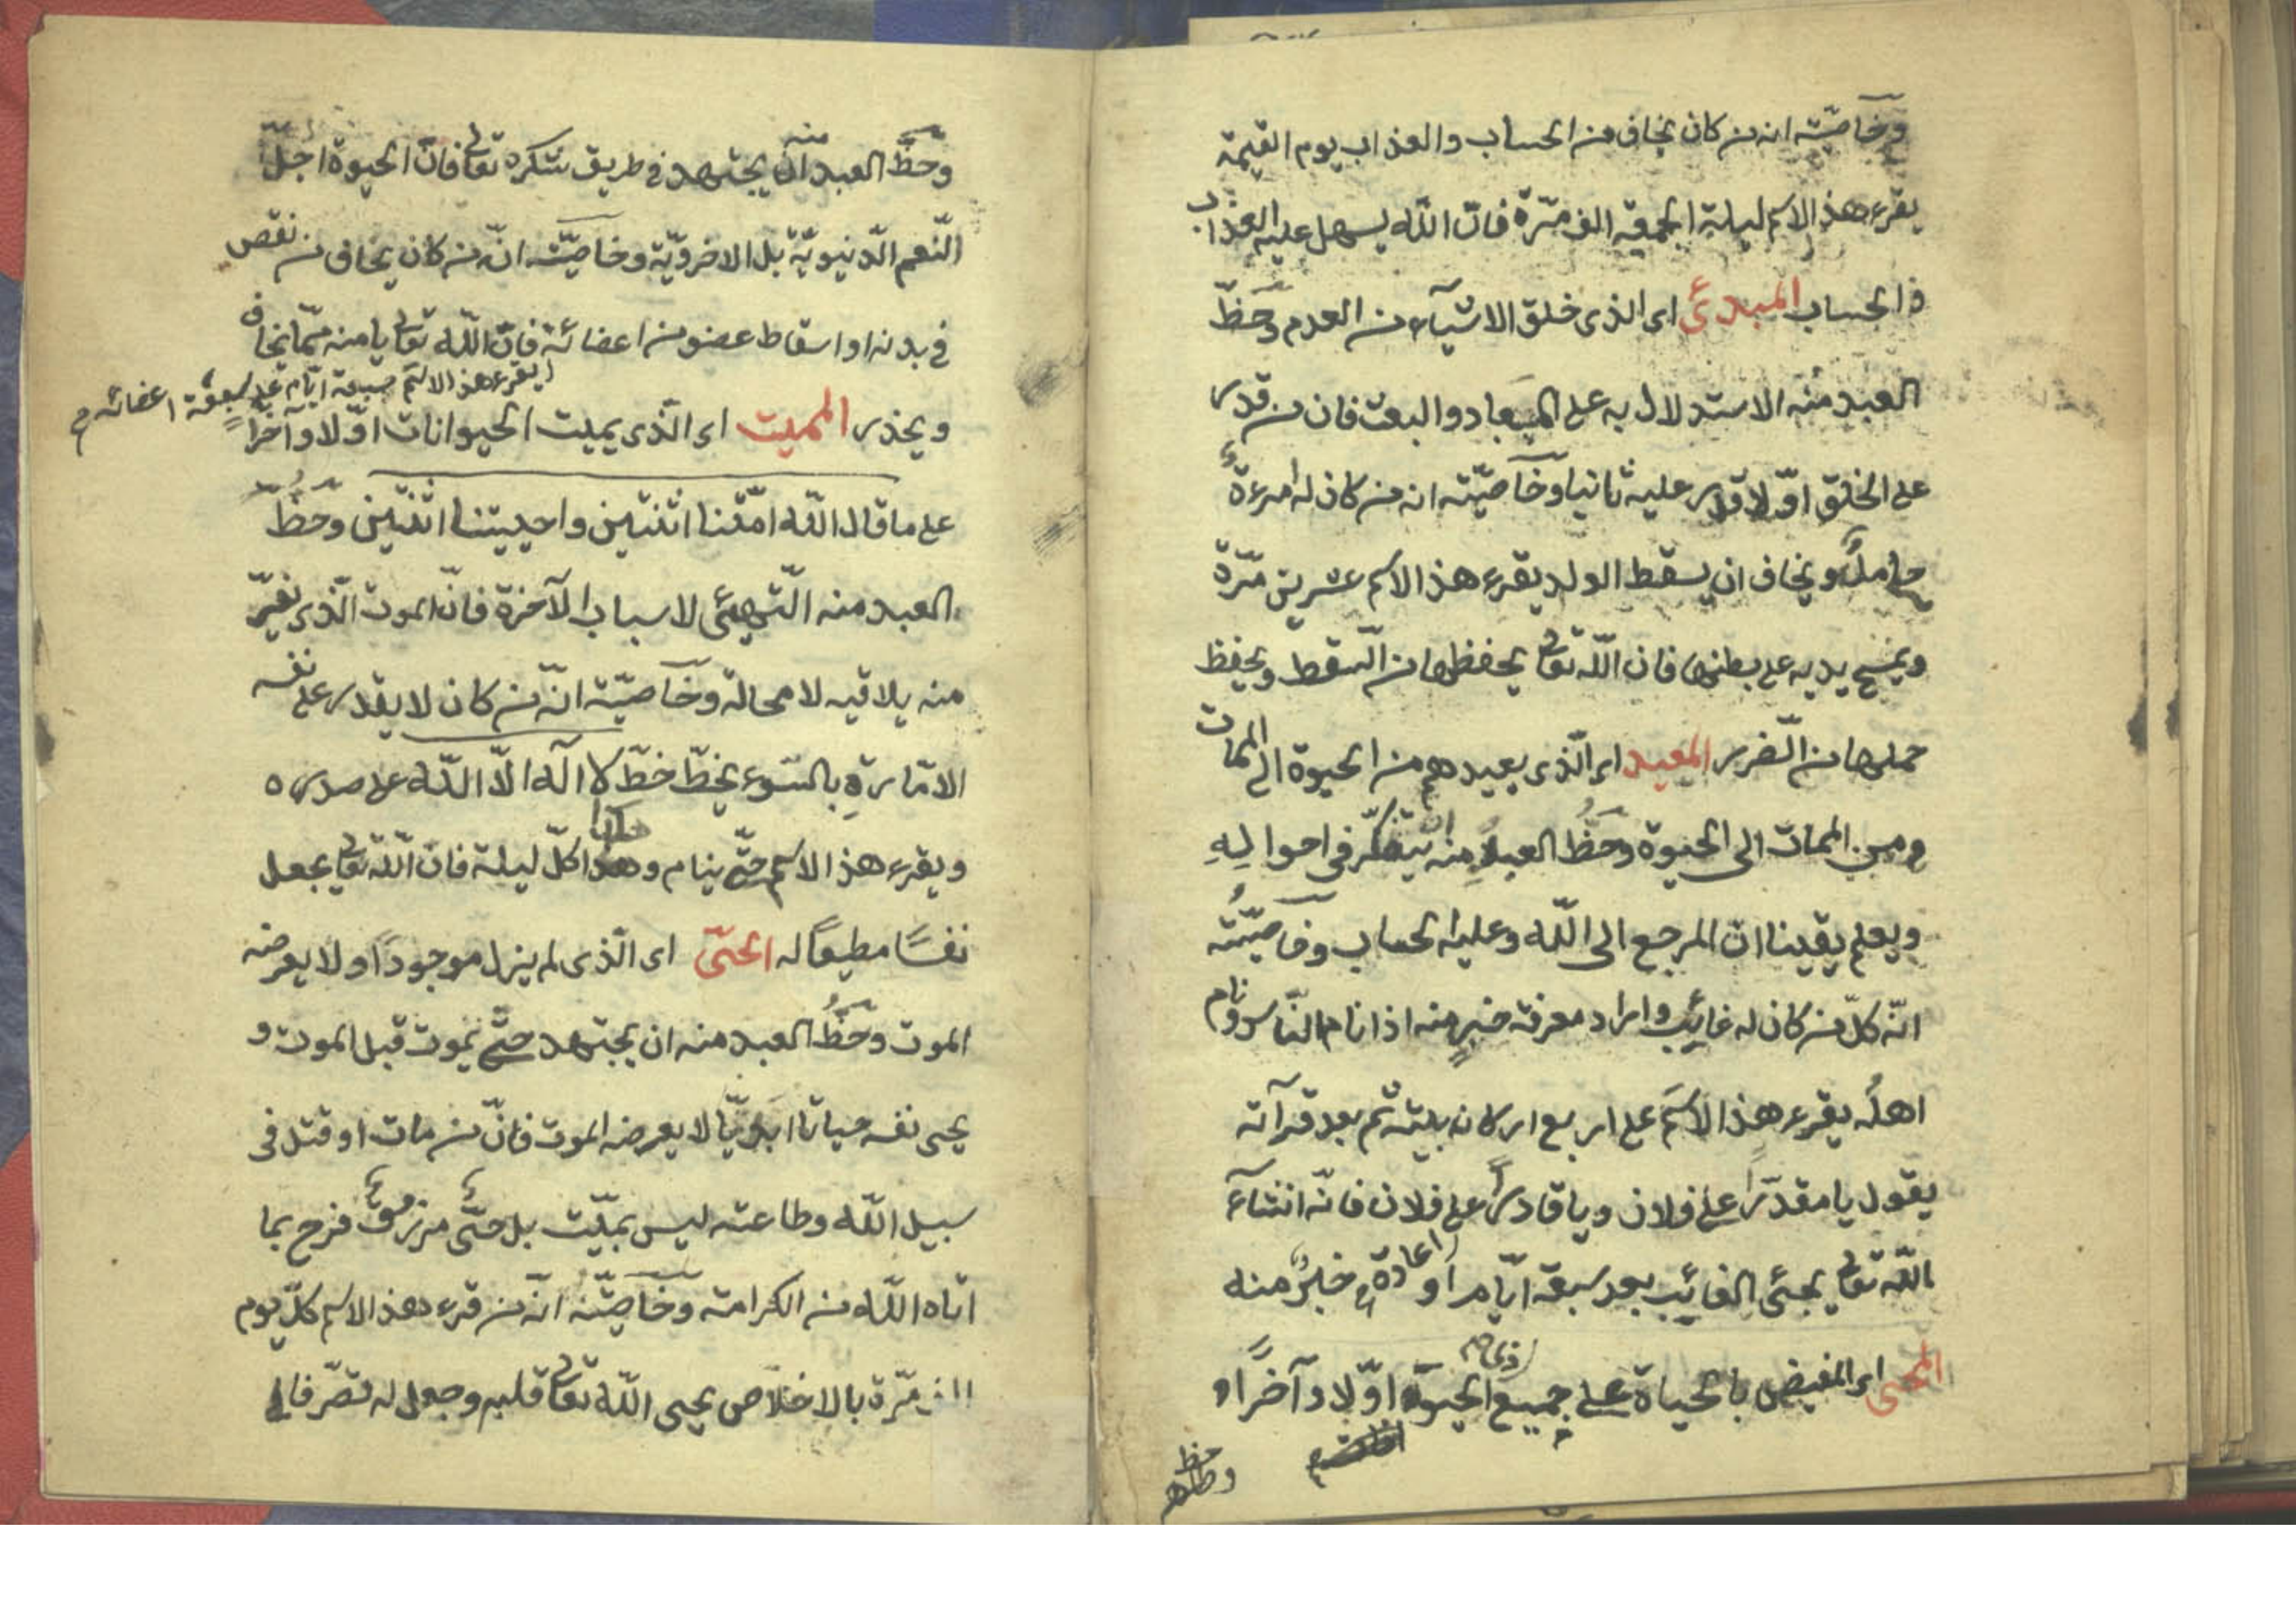 وخاصيّته انه من كان يخاف من الحساب والعذاب يوم القيمة
يقرء هذ الاسم ليلة الجمعة الف مرّة فانّ اللّه يسهل عليه العذاب
الحساب المبدئ اى الذى خلق الاشيآء من العدم وحظّ
العبد منه الاستدلال به على المعاد والبعث فان من قدر
على الخلق اوّلا قدر عليه ثانيا وخاصيّته انه من كان له امرءة
حاملٌ ويخاف ان يسقط الولد يقرء هذ الاسم عشرين مّرة
ويمسح يديه على بطنها فان اللّه تعالى يحفظها من السّقط ويحفظ
حملها من الضّرر المعيد اى الّذى يعيدهم من الحيوة الى الممات
ومن الممات الى الحيوة وحظُّ العبدِ منه ان يتفكّر فى احوالِهِ
ويعلم يقينا انّ المرجع الى اللّه وعليه الحساب وخاصيّتُه
انّه كلّ من كان له غائبٌ واراد معرفة خبرٍ منه اذا نام النّاس ونام
اهلُه يقرء هذ الاسم على اربع اركان بيته ثم بعد قرآته
يقول يا مقدّرًا على فلان ويا قادرًا على فلان فانّه انشآء
اللّه تعالى يجئى الغائب بعد سبعة ايّام او خبرٌ منه
المحيى اى المفيض بالحياة على جميع ذى الحيوة اوّلا وآخرًا و
وحظ
وحظَّ العبد منه ان يجتهد فى طريق شكره تعالى فانّ الحيوة اجلّ
النّعم الدّنيويّة بل الاخرويّة وخاصيّته انّ من كان يخاف من نقص
فى بدنه او اسقاط عضو من اعضائه فانّ اللّه تعالى يامنه ممّا يخاف
يقرء هذ الاسم سبعة ايّام على سبعة اعضائه
ويحذر المميت اى الّذى يميت الحيوانات اوّلا وآخرًا
على ما قال اللّه امتّنا اثنتين واحييتنا اثنتين وحظُّ
العبد منه التّهيئ لاسباب الآخرة فانّ الموت الّذى تفرّ
منه يلاقيه لا محالة وخاصيّته انّه من كان لا يقدر على نفسه
الامّارةِ بالسّوء يخطّ خطّ لا آله الّا اللّه على صدره
ويقرء هذ الاسم حتّى ينام وهكذا كلّ ليلة فانّ اللّه تعالى يجعل
نفسًا مطيعًا له الحىّ اى الّذى لم يزل موجودًا ولا يعرضه
الموت وحظُّ العبد منه ان يجتهد حتّى يموت قبل الموت و
يحيى نفسه حياتا ابديّا لا يعرضه الموت فانّ من مات او قتل فى
سبيل اللّه وطاعته ليس بميّت بل حىٌّ مرزوقٌ فرح بما
اتاه اللّه من الكرامة وخاصيّته انّه من قرء هذ الاسم كلّ يوم
الف مّرة بالاخلاص يحيى اللّه تعالى قلبه وجعل له تصرّفا فى